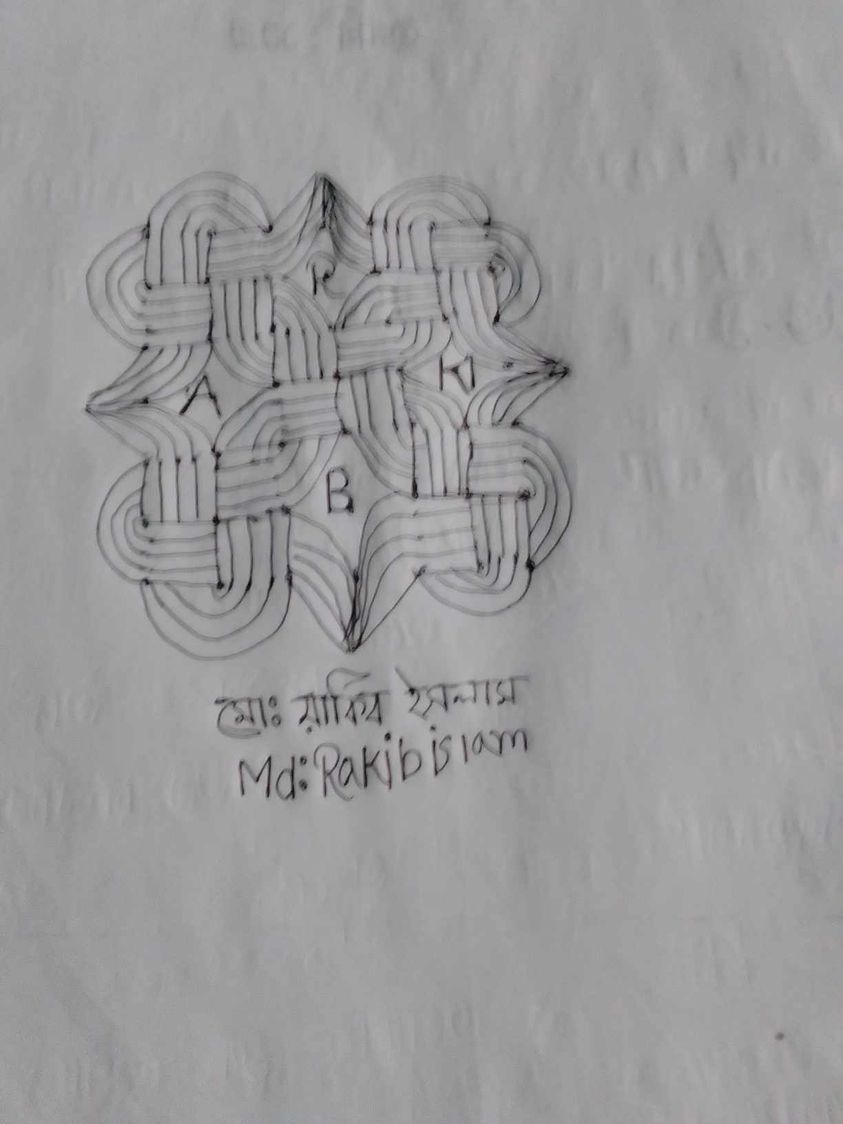 R
A
K
B
মোঃ রাকিব ইসলাম
Md: Rakib islam